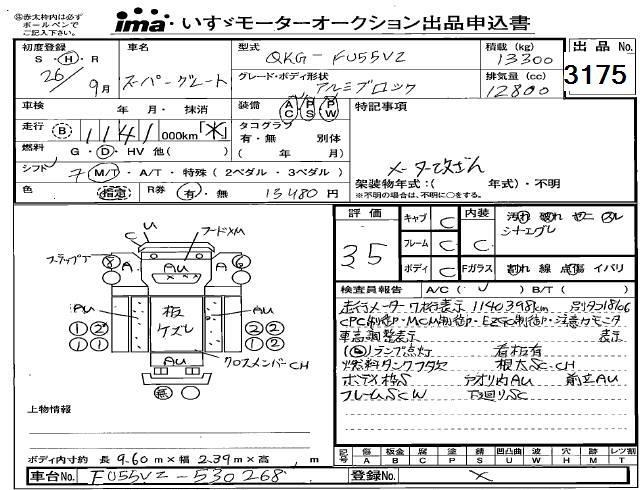 ㊟赤太枠内は必ずボールペンでご記入下さい。
ima いすゞモーターオークション出品申込書
初度登録 S・H・R 26年 9月
車名 スーパーグレート
型式 QKG-FU55VZ
グレード・ボディ形状 アルミブロック
積載(kg) 13300
排気量(cc) 12800
出品No. 3175
車検 年 月・抹消
装備 AC PS PW
特記事項
走行 B 1141 000km 「*」
タコグラフ 有・無 別体 ( 年 月)
燃料 G・D・HV 他( )
メーター改ざん
シフト 7 M/T・A/T・特殊(2ペダル・3ペダル)
架装物年式:( 年式)・不明
※不明の場合は、不明に○をする。
色 指定 R券 有・無 15480円
評価 35
キャブ C 内装 C
フレーム C
ボディ C Fガラス 割れ 線 点傷 イバリ
シートエグレ
検査員報告 A/C( ) B/T( )
走行メーター7桁表示 1140398km
CPC制御P・MCM制御P・EZGO制御P・注意々モニタ
車高調整表示 表示
ランプ点灯 看板有
燃料タンクフタ欠 根太SC.CH
ボディ枠S デオリ内AU 前立AU
フレームSCW 下廻りSC
U
C
フードXM
ステップT
A AU A
AU 板ケズレ AU
AU クロスメンバーCH
無
上物情報
ボディ内寸約 長 9.60 m×幅 2.39 m×高 m
記号 傷 板金 腐 塗 錆 凹凸曲 波 穴 跡 レツ割
A B C P S U W H M T
車台No. FU55VZ-530268
登録No. ×